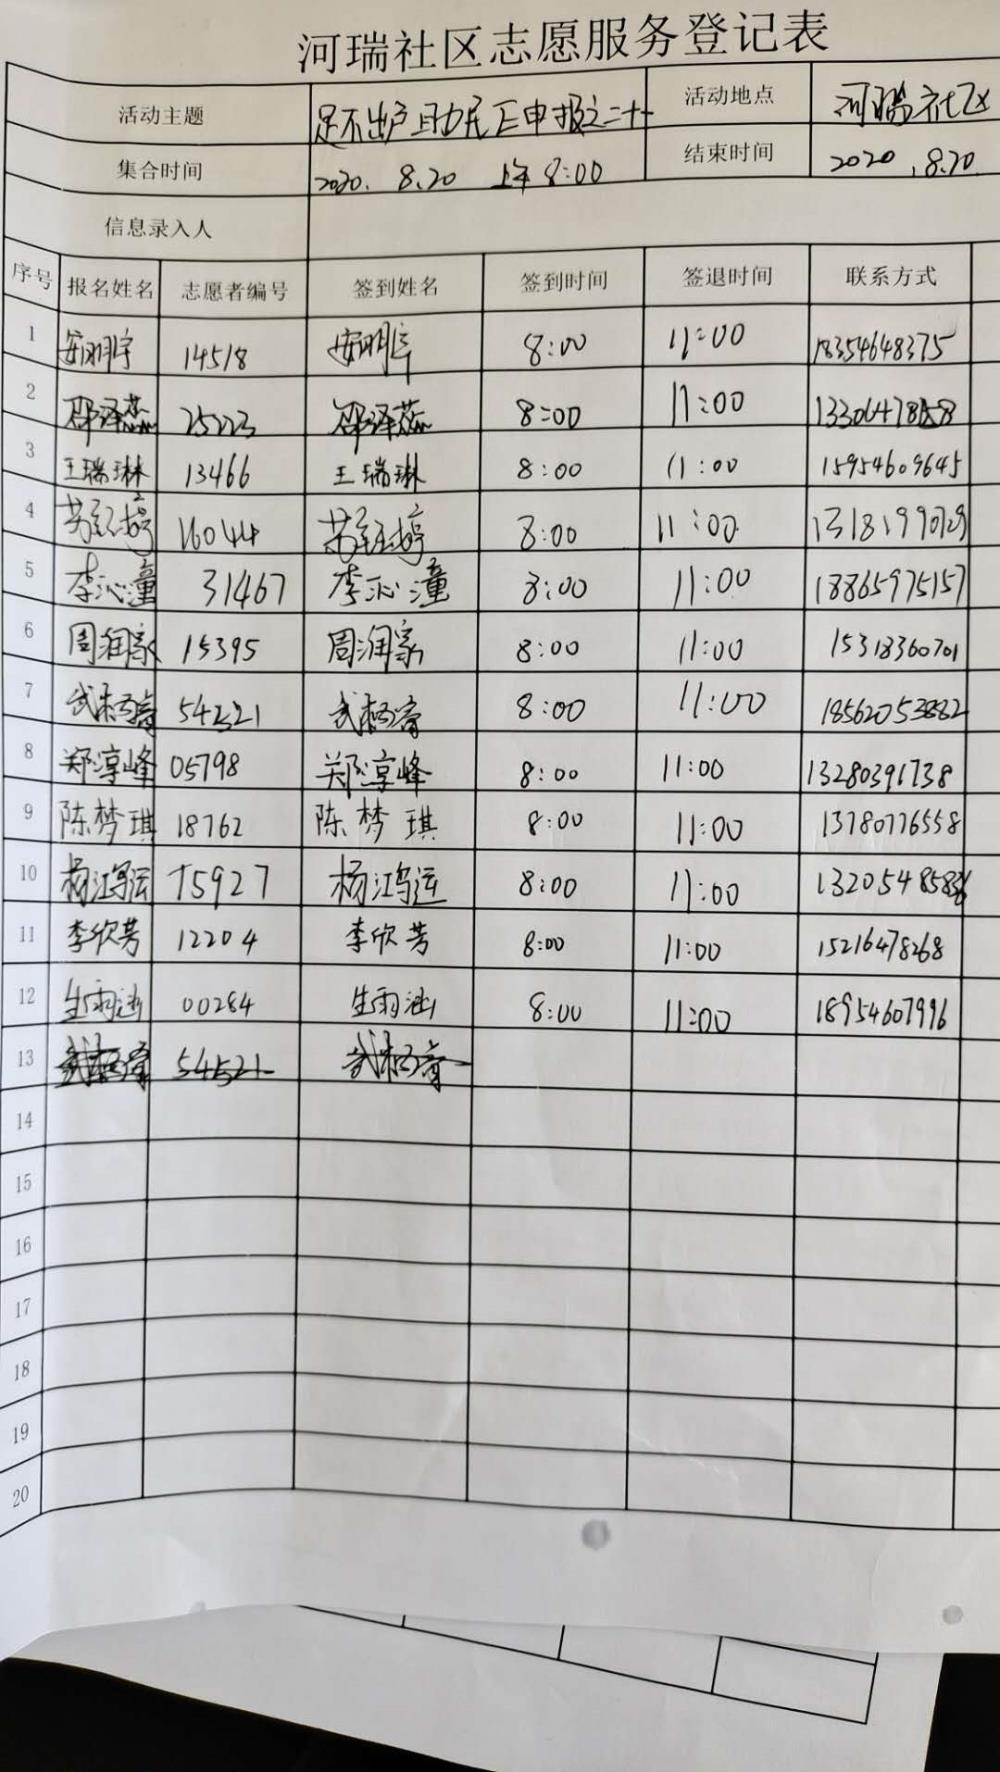 河瑞社区志愿服务登记表
活动主题 足不出户助民 申报之二十一 活动地点 河瑞社区
集合时间 2020.8.20 上午8:00 结束时间 2020.8.20
信息录入人
序号 报名姓名 志愿者编号 签到姓名 签到时间 签退时间 联系方式
1 14518 8:00 11:00 18354648375
2 邵泽蕊 25223 邵泽蕊 8:00 11:00
3 王瑞琳 13466 王瑞琳 8:00 11:00 15954609645
4 16044 8:00 11:00 13181990729
5 李沁潼 31467 李沁潼 8:00 11:00 18865975157
6 周润家 15395 周润家 8:00 11:00 15318360701
7 54221 8:00 11:00 18562053882
8 郑淳峰 05798 郑淳峰 8:00 11:00 13280391738
9 陈梦琪 18762 陈梦琪 8:00 11:00 13780776558
10 杨鸿运 15927 杨鸿运 8:00 11:00
11 李欣芳 12204 李欣芳 8:00 11:00 15216478268
12 生雨涵 00284 生雨涵 8:00 11:00 18954607996
13 54521
14
15
16
17
18
19
20